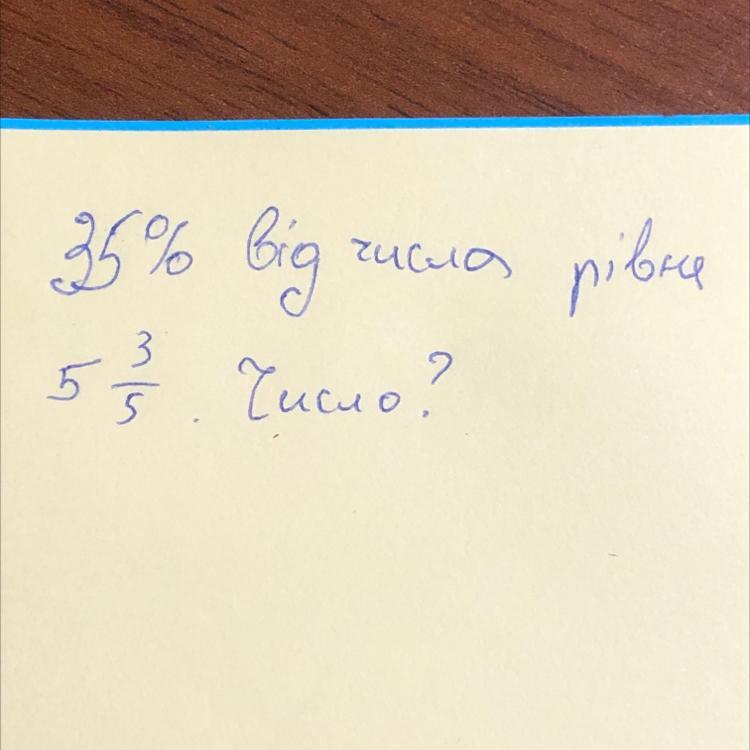 35% від числа рівне
5 3/5 . Число?